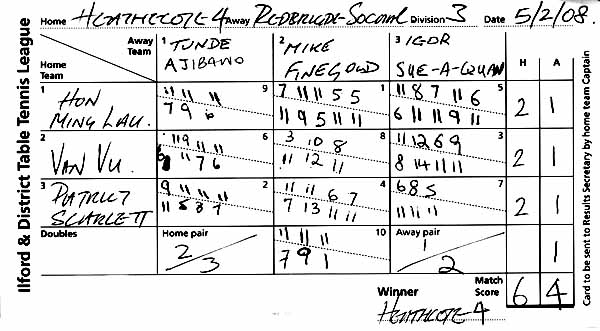 Ilford & District Table Tennis League
Home HEATHCOTE 4 Away REDBRIDGE-SOCIAL Division 3 Date 5/2/08.
Away Team
Home Team
1 TUNDE
AJIBAWO
2 MIKE
FINEGOLD
3 IGOR
SUE-A-QUAN
H A
1 HON
MING LAU.
11 11 11 9
7 9 6
7 11 11 5 5 1
11 9 5 11 11
11 8 7 11 6 5
6 11 11 9 11
2 1
2 VAN VU.
11 9 11 11 6
11 7 6
3 10 8 8
11 12 11
11 12 6 9 3
8 14 11 11
2 1
3 PATRICK
SCARLETT
9 11 11 11 2
11 5 8 7
11 11 6 7 4
7 13 11 11
6 8 5 7
11 11 11
2 1
Doubles
Home pair
2/3
11 11 11 10
7 9 1
Away pair
1/2
1
Winner HEATHCOTE 4
Match Score 6 4
Card to be sent to Results Secretary by home team Captain